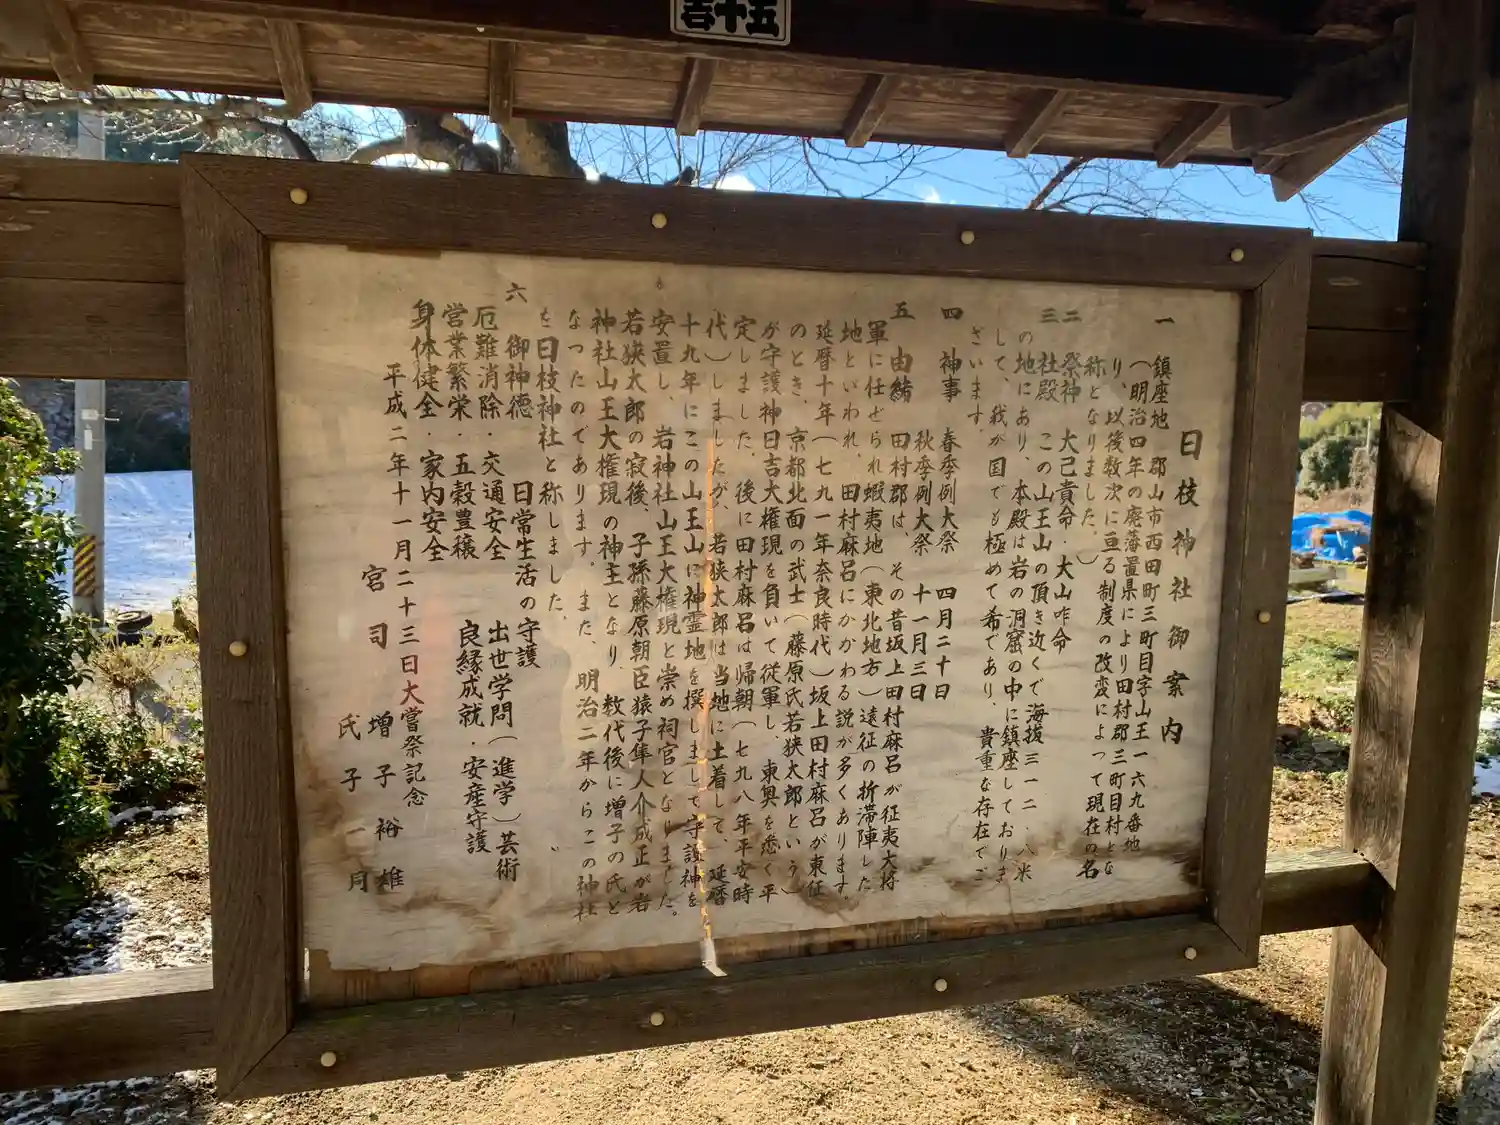 五十岩
日枝神社御案内
一 鎮座地 郡山市西田町三町目字山王一六九番地
(明治四年の廃藩置県により田村郡三町目村とな
り、以後数次に亘る制度の改変によって現在の名
称となりました。)
二 祭神 大己貴命・大山咋命
三 社殿 この山王山の頂き近くで海抜三一二、八米
の地にあり、本殿は岩の洞窟の中に鎮座しておりま
して、我が国でも極めて希であり、貴重な存在でご
ざいます。
四 神事 春季例大祭 四月二十日
秋季例大祭 十一月三日
五 由緒 田村郡は、その昔坂上田村麻呂が征夷大将
軍に任ぜられ蝦夷地(東北地方)遠征の折滞陣した
地といわれ、田村麻呂にかかわる説が多くあります。
延暦十年(七九一年奈良時代)坂上田村麻呂が東征
のとき、京都北面の武士(藤原氏若狭太郎という)
が守護神日吉大権現を負いて従軍し、東奥を悉く平
定しました。後に田村麻呂は帰朝(七九八年平安時
代)しましたが、若狭太郎は当地に土着して、延暦
十九年にこの山王山に神霊地を撰しまして守護神を
安置し、岩神社山王大権現と崇め祠官となりました。
若狭太郎の寂後、子孫藤原朝臣猿子隼人介成正が岩
神社山王大権現の神主となり、数代後に増子の氏と
なったのであります。また、明治二年からこの神社
を日枝神社と称しました。
六 御神徳 日常生活の守護
厄難消除・交通安全 出世学問(進学)芸術
営業繁栄・五穀豊穣 良縁成就・安産守護
身体健全・家内安全
平成二年十一月二十三日大嘗祭記念
宮司 増子裕雄
氏子一同